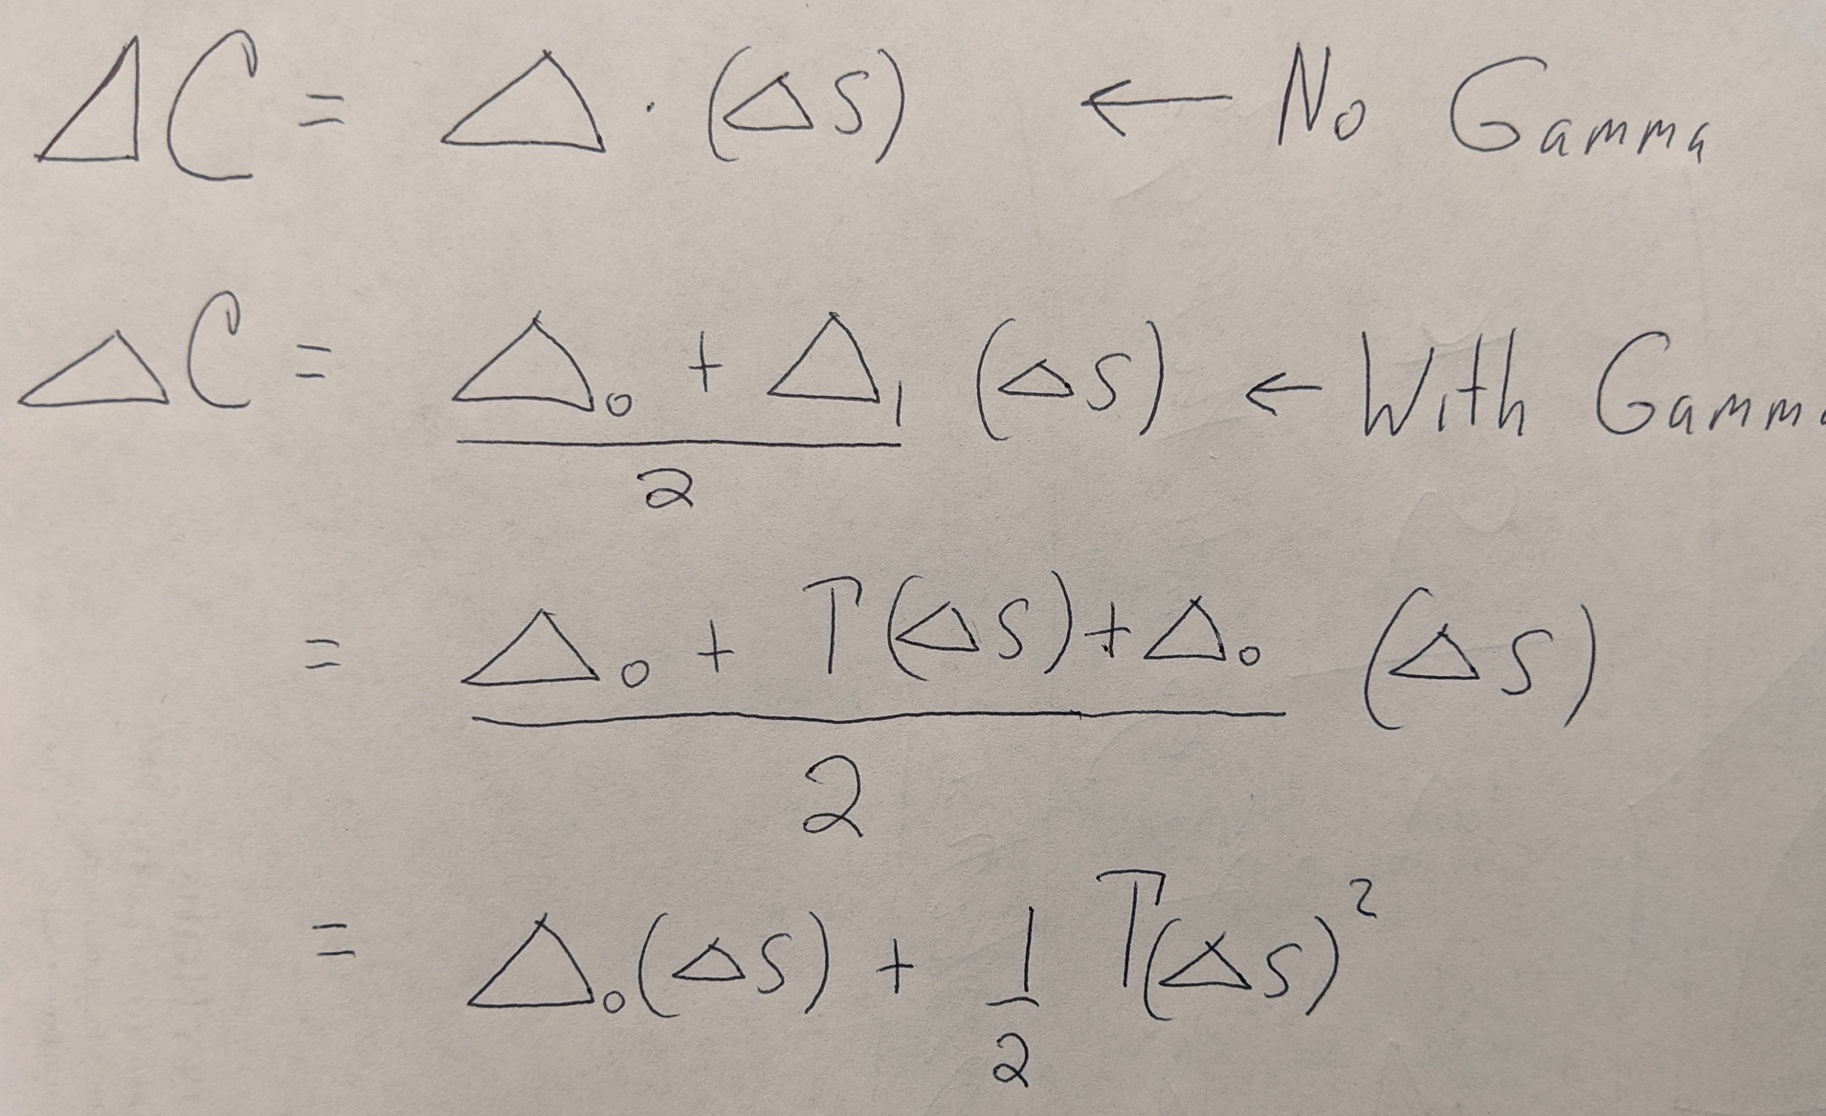 ΔC = Δ · (ΔS) ← No Gamma
ΔC = (Δ₀ + Δ₁)/2 (ΔS) ← With Gamma
= (Δ₀ + Γ(ΔS) + Δ₀)/2 (ΔS)
= Δ₀(ΔS) + 1/2 Γ(ΔS)²